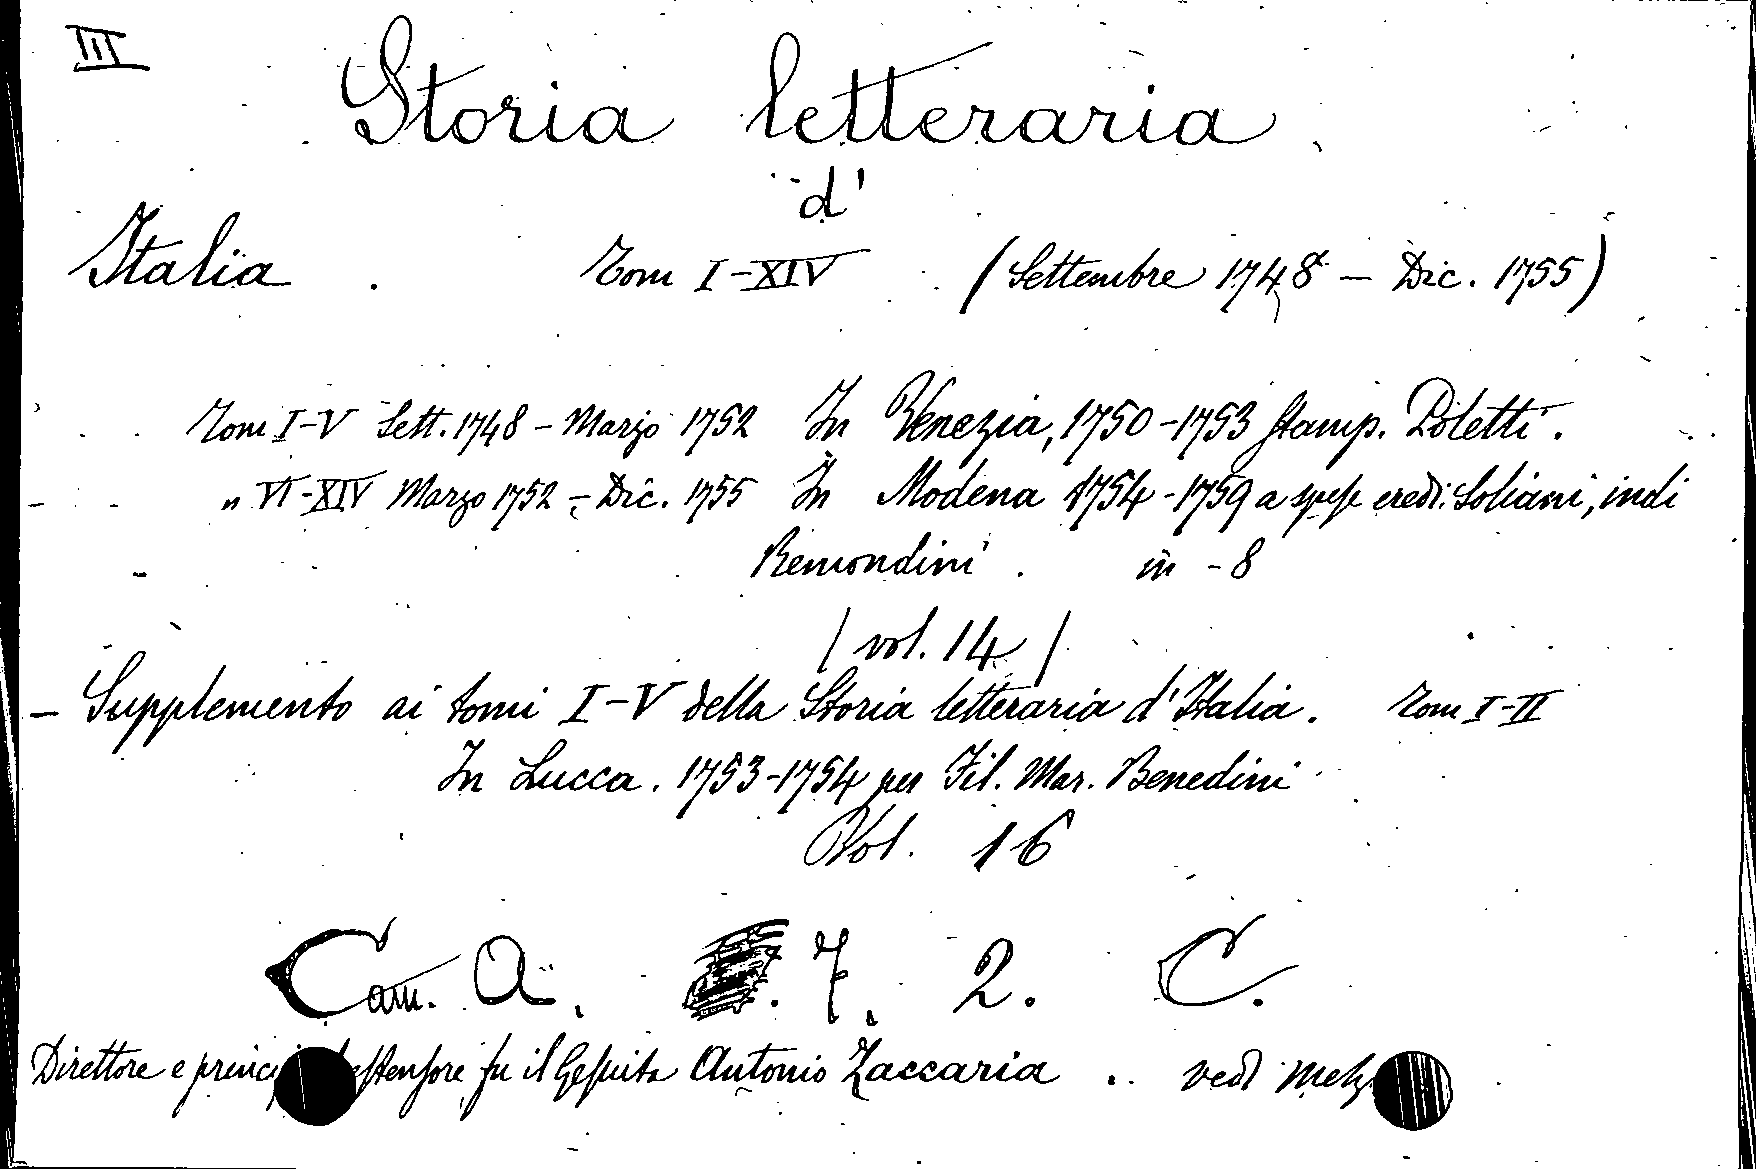 III
Storia letteraria
d'
Italia. Tomi I-XIV (Settembre 1748 – Dic. 1755)
Tomi I-V Sett. 1748 – Marzo 1752 In Venezia, 1750-1753 Stamp. Poletti.
" VI-XIV Marzo 1752 – Dic. 1755 In Modena 1754-1759 a spese eredi Soliani, indi
Remondini. in-8
(vol. 14)
– Supplemento ai tomi I-V della Storia letteraria d'Italia. Tomi I-II
In Lucca. 1753-1754 per Fil. Mar. Benedini
Vol. 16
Cam. A. 7. 2. C.
Direttore e fu il Gesuita Antonio Zaccaria .. vedi